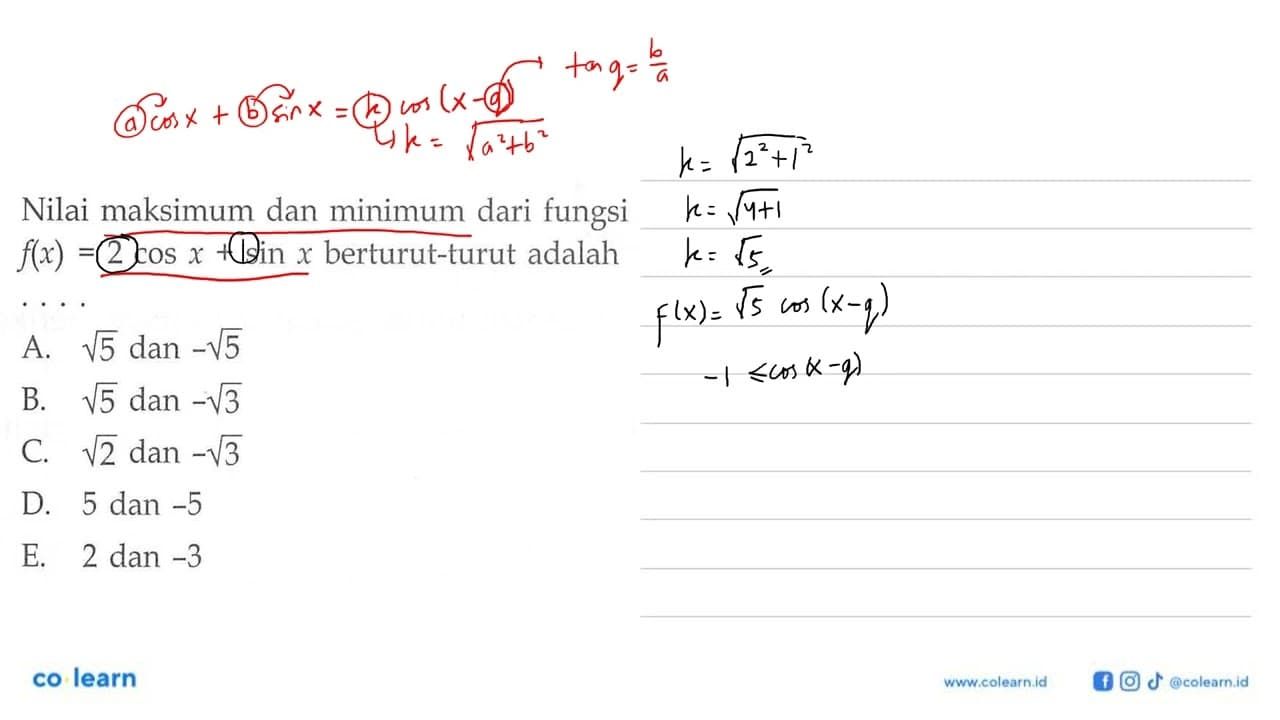 a cos x + b sin x = k cos (x - q) tan q = b/a
k = √a² + b²
Nilai maksimum dan minimum dari fungsi
f(x) = 2 cos x + 1 sin x berturut-turut adalah
....
A. √5 dan -√5
B. √5 dan -√3
C. √2 dan -√3
D. 5 dan -5
E. 2 dan -3
k = √2² + 1²
k = √4+1
k = √5
f(x) = √5 cos (x - q)
-1 ≤ cos (x - q)
co learn
www.colearn.id @colearn.id